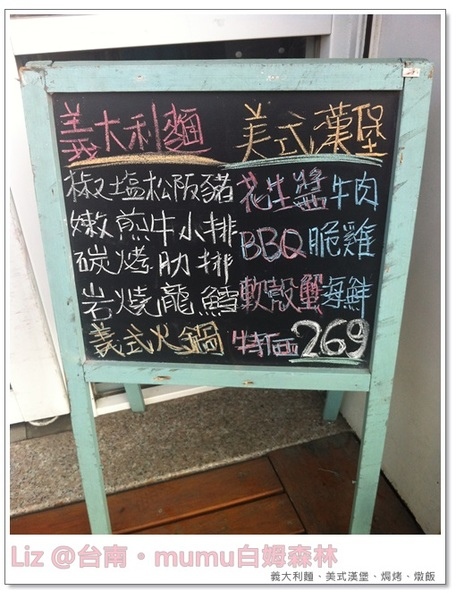 義大利麵 美式漢堡
椒塩松阪豬 花生醬牛肉
嫩煎牛小排 BBQ脆雞
碳烤肋排 軟殼蟹海鮮
岩燒龍鱈 特価269
義式火鍋
Liz @台南・mumu白姆森林
義大利麵、美式漢堡、焗烤、燉飯